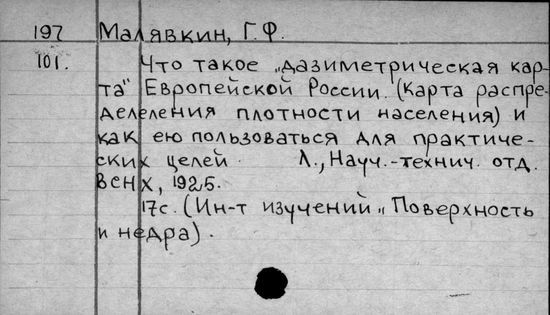 197 Малявкин, Г.Ф.
101. Что такое „дазиметрическая кар-
та" Европейской России. (Карта распре-
делеления плотности населения) и
как ею пользоваться для практиче-
ских целей. Л., Науч.-технич. отд.
ВСНХ, 1925.
17с. (Ин-т изучений „Поверхность
и недра).